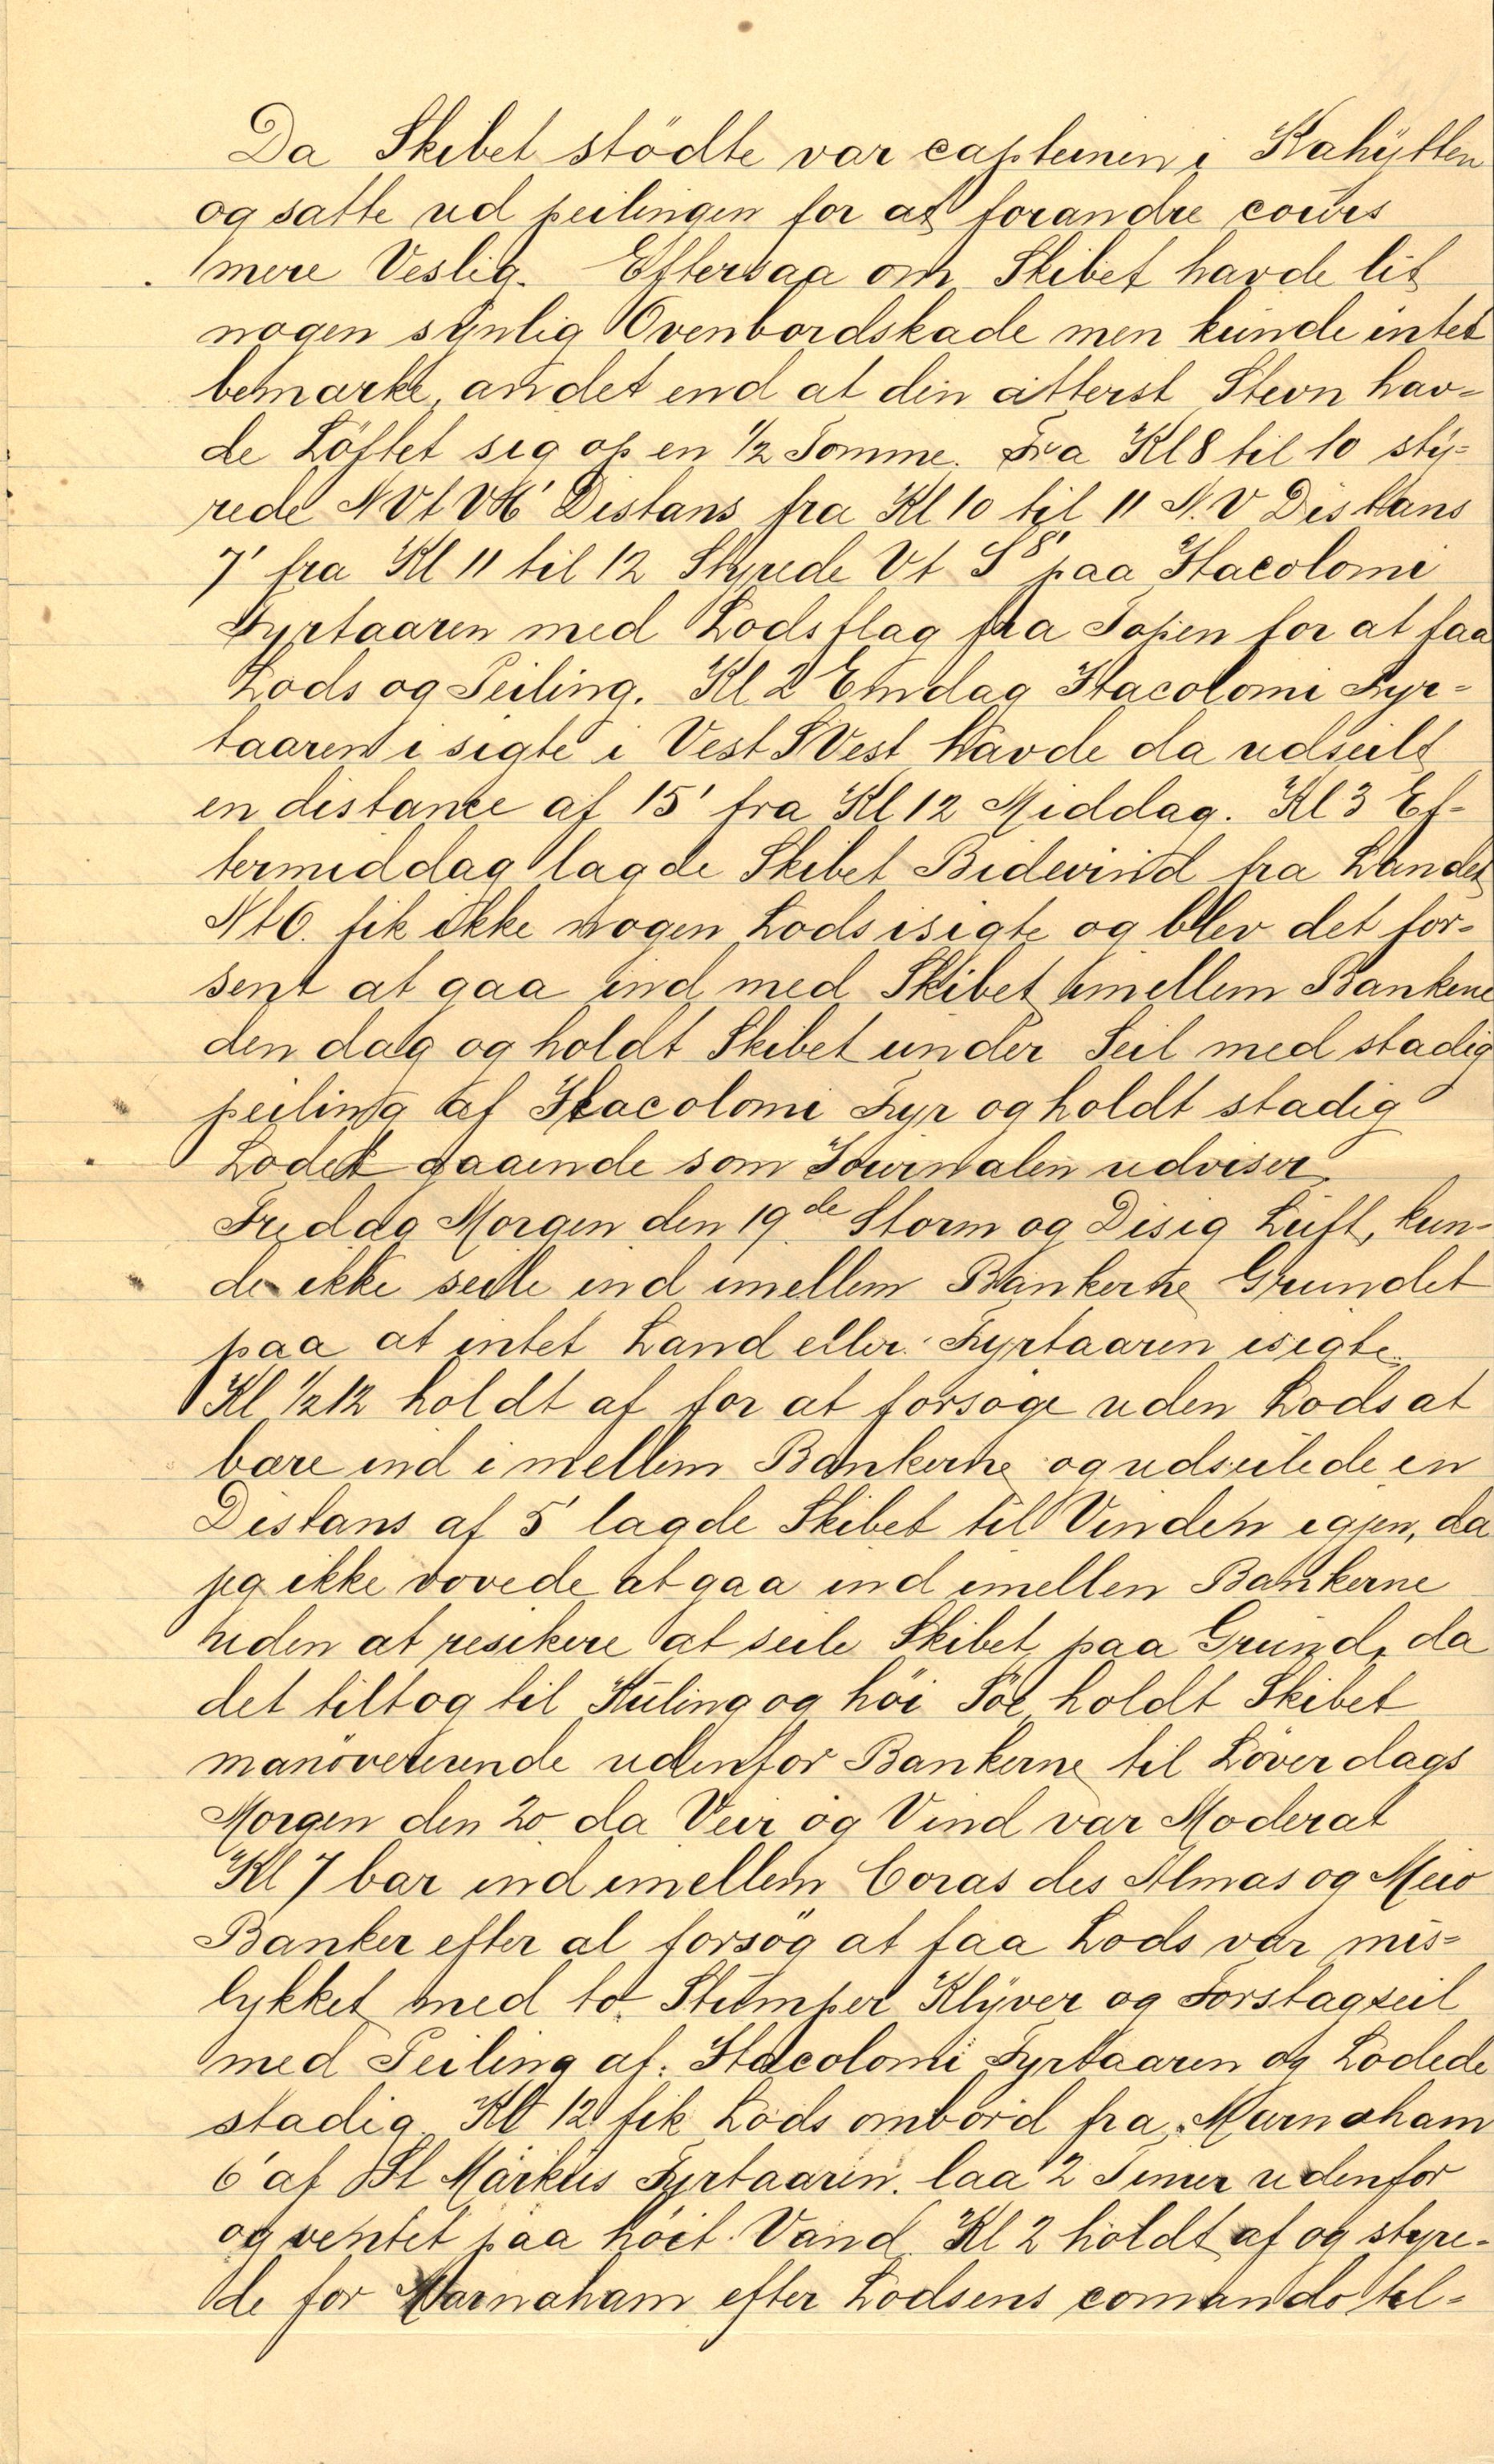 Da Skibet stödte var capteinen i Kahütten
og satte ud peilingen for at forandre cours
mere Vestlig. Eftersaa om Skibet havde lit
nogen synlig Ovenbordskade men kunde intet
bemærke, andet end at den ätterst Stevn hav-
de Löftet sig op en 1/2 Tomme. Fra Kl 8 til 10 sty-
rede NVtV 16' Distans fra Kl 10 til 11 N.V Distans
7' fra Kl 11 til 12 Styrede Vt S 8' paa Itacolomi
Fyrtaaren med Lodsflag fra Topen for at faa
Lods og Peiling. Kl 2 Emdag Itacolomi Fyr-
taaren i sigte i Vest S Vest havde da udseilt
en distance af 15' fra Kl 12 Middag. Kl 3 Ef-
termiddag lagde Skibet Bidevind fra Landet
NtO. fik ikke nogen Lods isigte og blev det for-
sent at gaa ind med Skibet imellem Bankene
den dag og holdt Skibet under Seil med stadig
peiling af Itacolomi Fyr og holdt stadig
Lodet gaaende som Journalen udviser.
Fredag Morgen den 19de Storm og Disig Luft, kun-
de ikke seile ind imellem Bankerne Grundet
paa at intet Land eller Fyrtaaren isigte.
Kl 1/2 12 holdt af for at forsöge uden Lods at
bære ind i mellem Bankerne og udseilede en
Distans af 5' lagde Skibet til Vinden igjen, da
jeg ikke vovede at gaa ind imellen Bankerne
uden at resikere at seile Skibet paa Grund, da
det tiltog til Kuling og höi Söe holdt Skibet
manövererende udenfor Bankerne til Löverdags
Morgen den 20 da Veir og Vind var Moderat
Kl 7 bar ind imellem Coras des Almas og Meio
Banker efter al forsög at faa Lods var mis-
lykket med to Stumper Klyver og Forstagseil
med Peiling af. Itacolomi Fyrtaaren og Lodede
stadig. Kl 12 fik Lods ombord fra Marnaham
6' af St Markus Fyrtaaren. laa 2 Timer udenfor
og ventet paa höit Vand. Kl 2 holdt af og styre-
de for Marnaham efter Lodsens comando til-